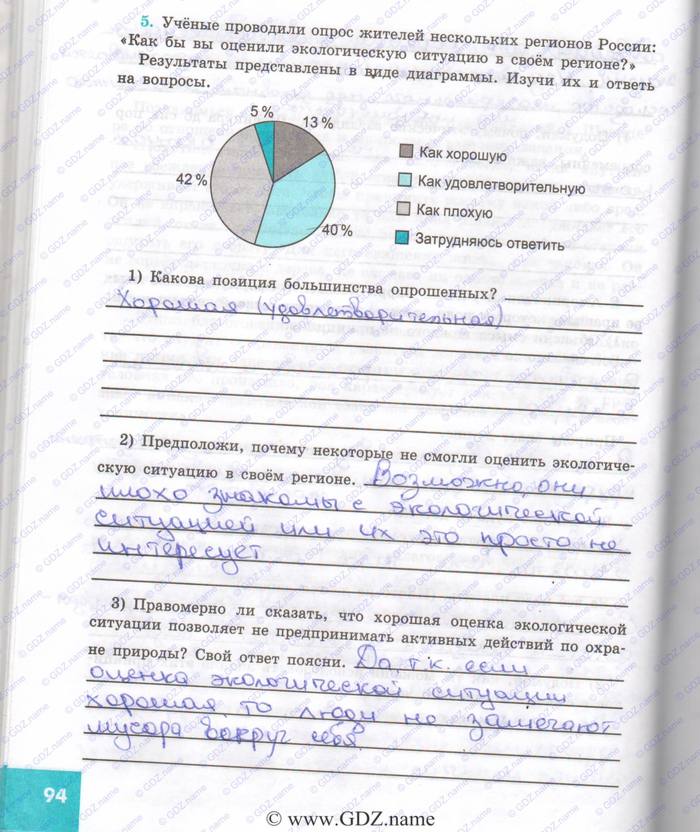 5. Учёные проводили опрос жителей нескольких регионов России:
«Как бы вы оценили экологическую ситуацию в своём регионе?»
Результаты представлены в виде диаграммы. Изучи их и ответь
на вопросы.
5 %
13 %
42 %
40 %
Как хорошую
Как удовлетворительную
Как плохую
Затрудняюсь ответить
1) Какова позиция большинства опрошенных?
Хорошая (удовлетворительная)
2) Предположи, почему некоторые не смогли оценить экологиче-
скую ситуацию в своём регионе. Возможно, они
плохо знакомы с экологической
ситуацией или их это просто не
интересует
3) Правомерно ли сказать, что хорошая оценка экологической
ситуации позволяет не предпринимать активных действий по охра-
не природы? Свой ответ поясни. Да, т.к. если
оценка экологической ситуации
хорошая, то люди не замечают
мусора вокруг себя
94
© www.GDZ.name